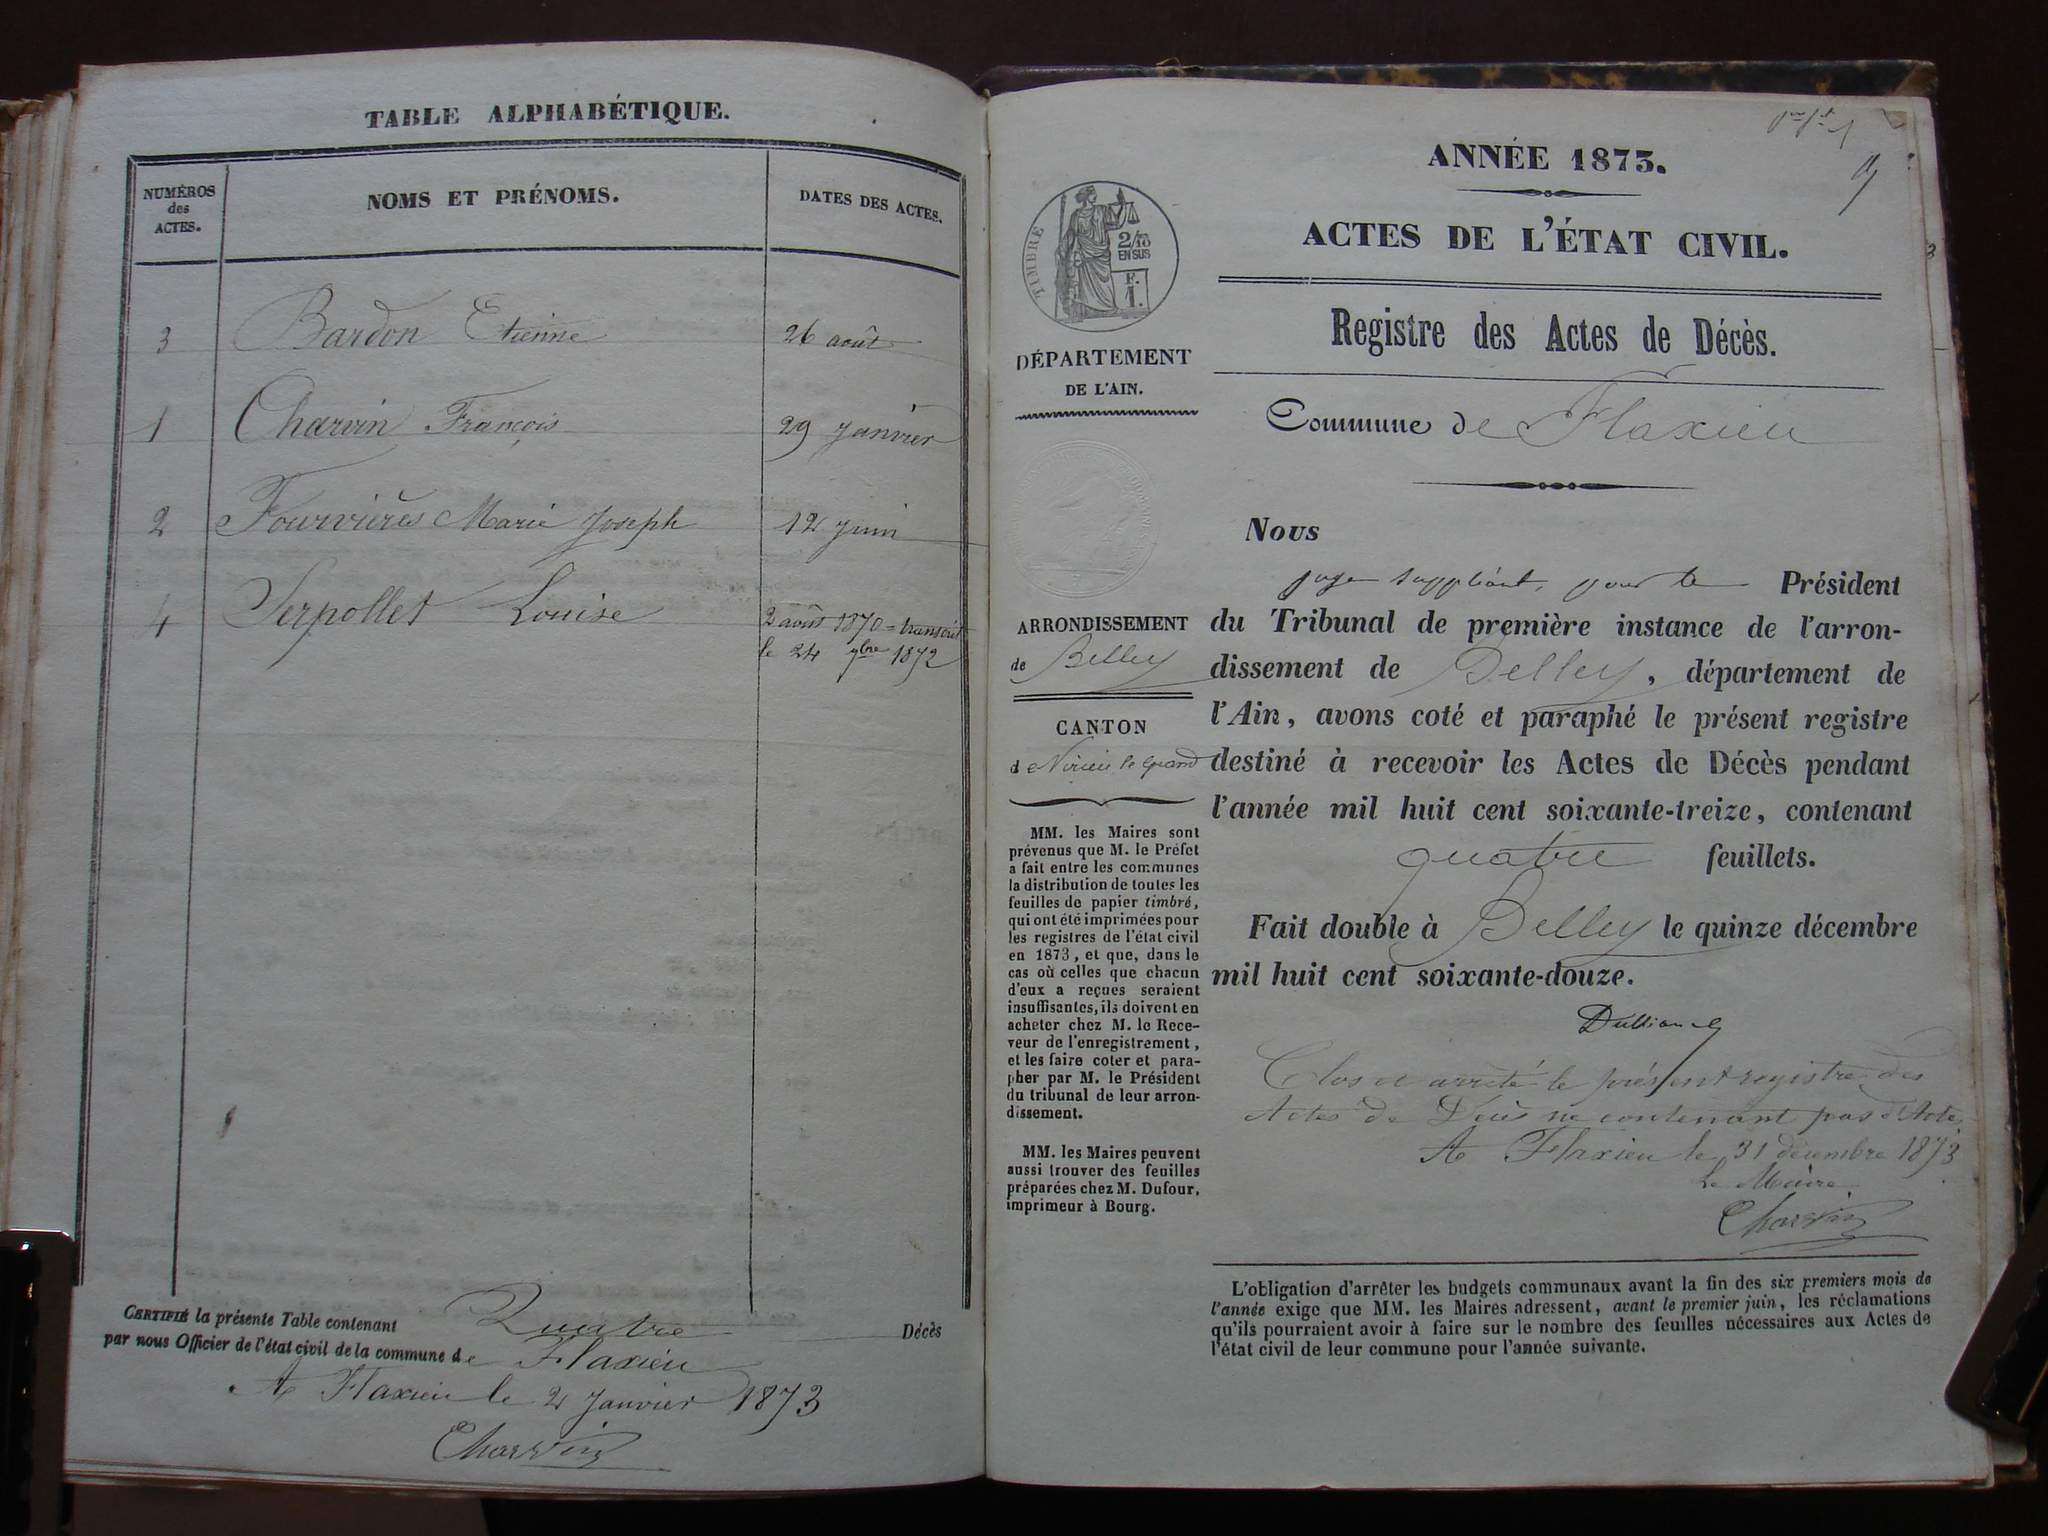 TABLE ALPHABÉTIQUE.
NUMÉROS
des
ACTES.
NOMS ET PRÉNOMS.
DATES DES ACTES.
3 Bardon Etienne 26 août
1 Charvin François 29 janvier
2 Fourvières Marie Joseph 12 juin
4 Serpollet Louise 2 août 1870 = transcrit
le 24 9bre 1872
CERTIFIÉ la présente Table contenant Quatre Décès
par nous Officier de l'état civil de la commune de Flaxieu
A Flaxieu le 2 Janvier 1873
Charvin
ANNÉE 1873.
ACTES DE L'ÉTAT CIVIL.
Registre des Actes de Décès.
Commune de Flaxieu
TIMBRE
2/10
EN SUS
F.
1.
DÉPARTEMENT
DE L'AIN.
ARRONDISSEMENT
de Belley
CANTON
de Virieu le Grand
MM. les Maires sont
prévenus que M. le Préfet
a fait entre les communes
la distribution de toutes les
feuilles de papier timbré,
qui ont été imprimées pour
les registres de l'état civil
en 1873, et que, dans le
cas où celles que chacun
d'eux a reçues seraient
insuffisantes, ils doivent en
acheter chez M. le Rece-
veur de l'enregistrement,
et les faire coter et para-
pher par M. le Président
du tribunal de leur arron-
dissement.
MM. les Maires peuvent
aussi trouver des feuilles
préparées chez M. Dufour,
imprimeur à Bourg.
Nous
juge suppléant, pour le Président
du Tribunal de première instance de l'arron-
dissement de Belley, département de
l'Ain, avons coté et paraphé le présent registre
destiné à recevoir les Actes de Décès pendant
l'année mil huit cent soixante-treize, contenant
quatre feuillets.
Fait double à Belley le quinze décembre
mil huit cent soixante-douze.
Clos et arrêté le présent registre des
Actes de Décès ne contenant pas d'Acte,
A Flaxieu le 31 décembre 1873
Le Maire
Charvin
L'obligation d'arrêter les budgets communaux avant la fin des six premiers mois de
l'année exige que MM. les Maires adressent, avant le premier juin, les réclamations
qu'ils pourraient avoir à faire sur le nombre des feuilles nécessaires aux Actes de
l'état civil de leur commune pour l'année suivante.